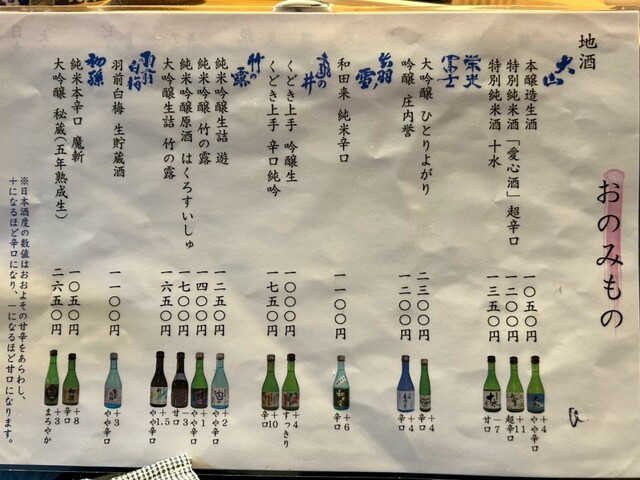 おのみもの
地酒
大山
本醸造生酒 一〇五〇円 +4 やや辛口
特別純米酒「愛心酒」超辛口 一二〇〇円 +11 超辛口
特別純米酒 十水 一三五〇円 −7 甘口
栄光冨士
大吟醸 ひとりよがり 二三〇〇円 +4 辛口
吟醸 庄内誉 一二〇〇円 +4 辛口
出羽ノ雪
和田来 純米辛口 一一〇〇円 +6 辛口
亀の井
くどき上手 吟醸生 一〇〇〇円 +4 すっきり
くどき上手 辛口純吟 一七五〇円 +10 辛口
竹の露
純米吟醸生詰 遊 一二五〇円 +2 やや辛口
純米吟醸 竹の露 一四〇〇円 +1 やや辛口
純米吟醸原酒 はくろすいしゅ 一七〇〇円 −3 甘口
大吟醸生詰 竹の露 一六五〇円 +1.5 やや辛口
羽前白梅
羽前白梅 生貯蔵酒 一一〇〇円 +3 やや辛口
初孫
純米本辛口 魔斬 一〇五〇円 +8 辛口
大吟醸 秘蔵(五年熟成生) 二六五〇円 +3 まろやか
※日本酒度の数値はおおよその甘辛をあらわし、
+になるほど辛口になり、−になるほど甘口になります。